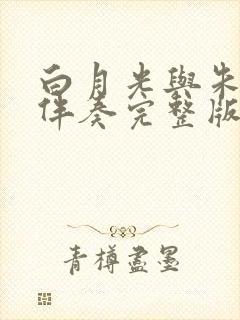 白月光與朱
伴奏完整版
青樽盡墨